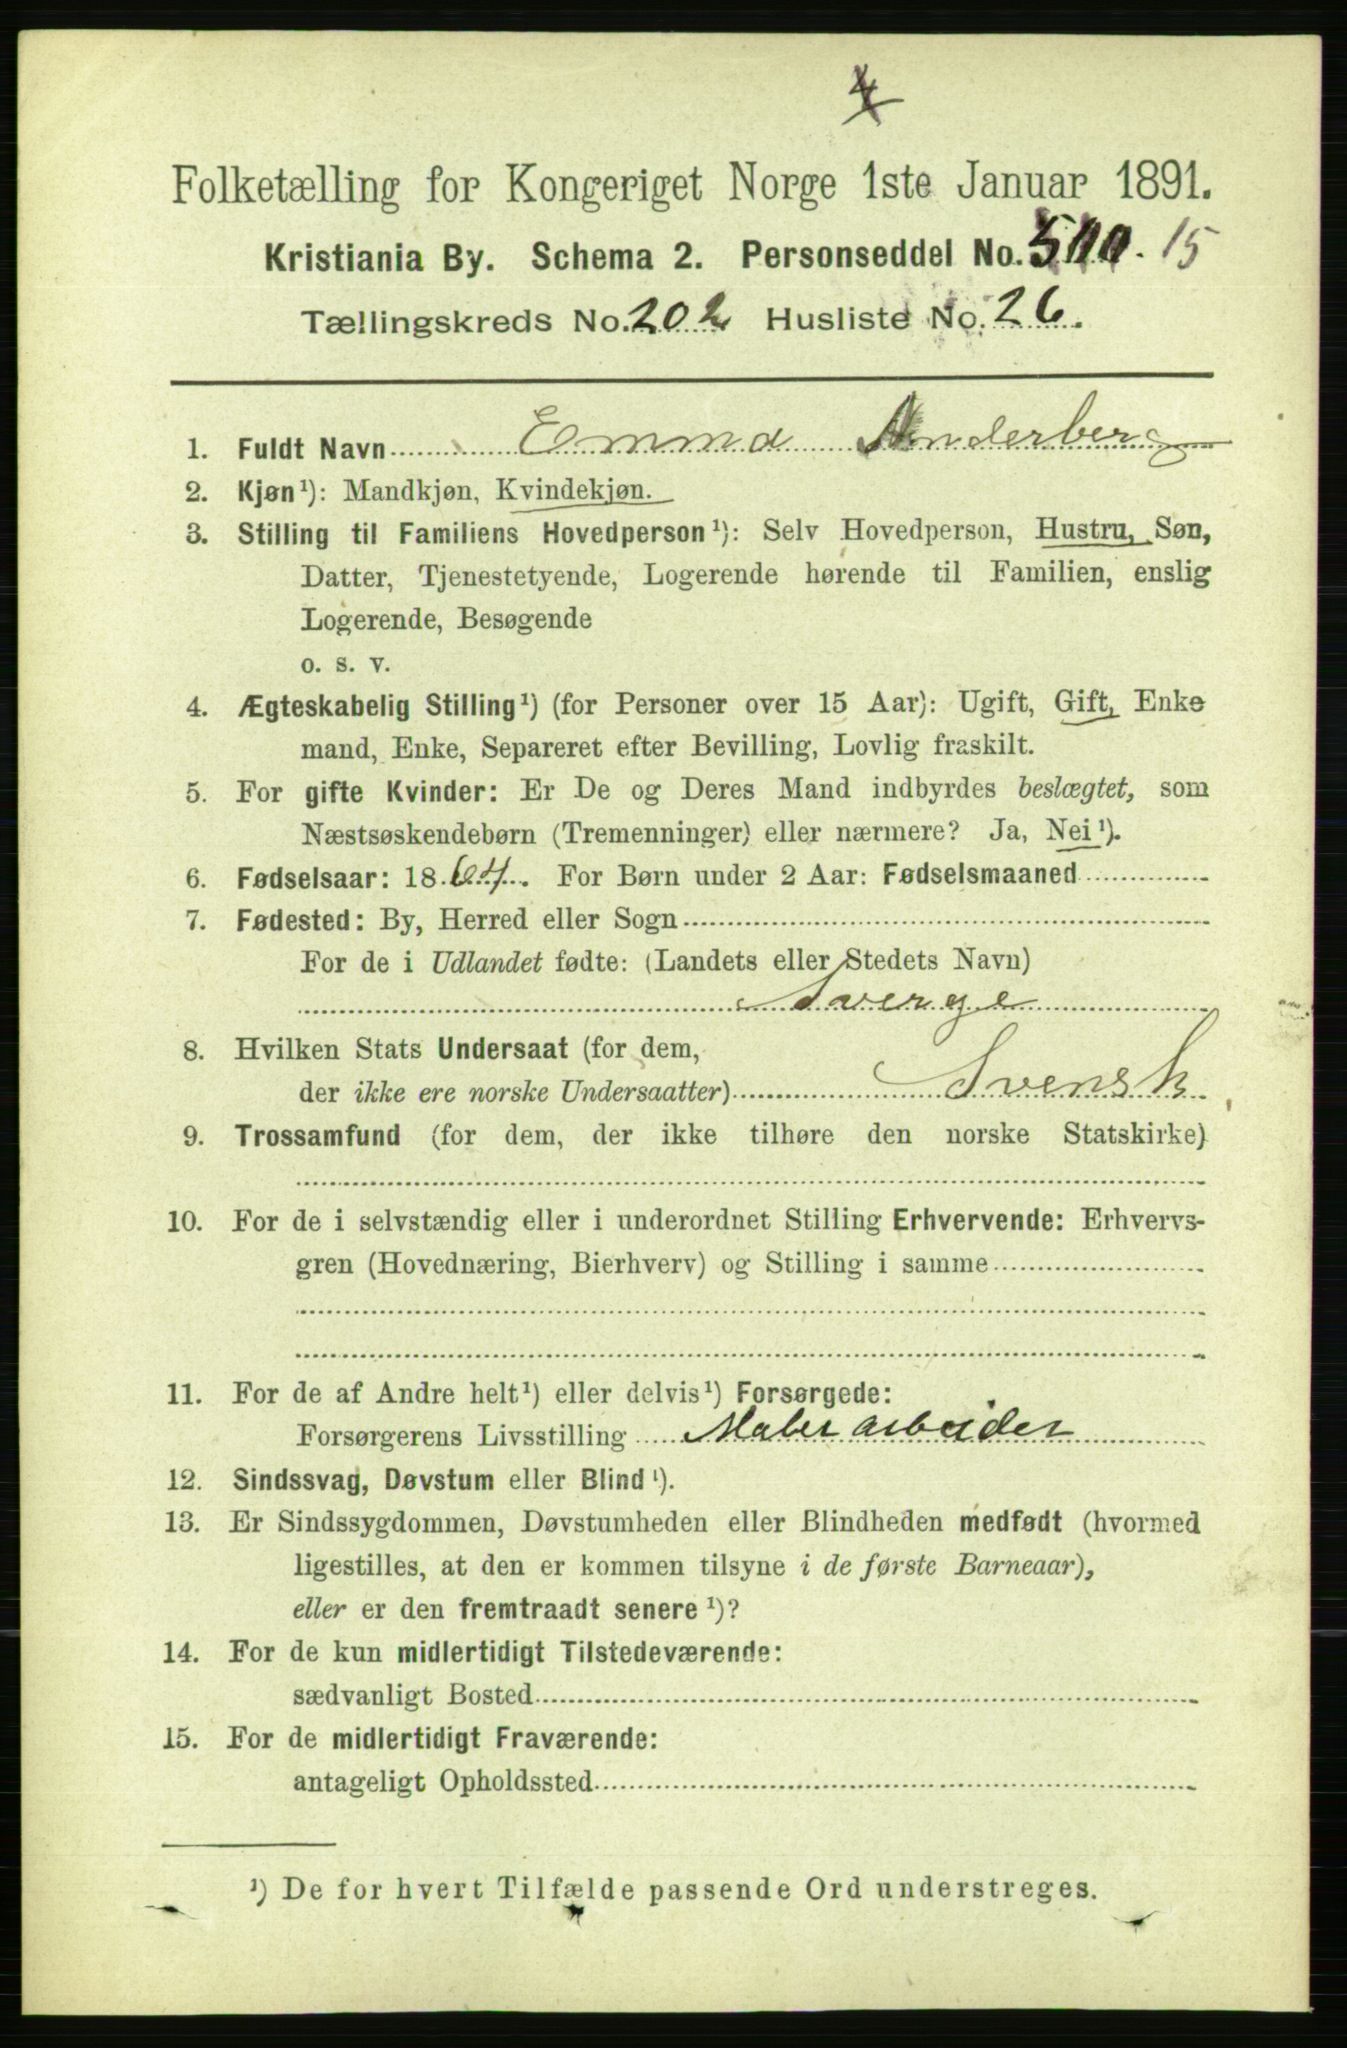 4
Folketælling for Kongeriget Norge 1ste Januar 1891.
Kristiania By. Schema 2. Personseddel No. 15
Tællingskreds No. 202 Husliste No. 26.
1. Fuldt Navn Emma Anderberg
2. Kjøn¹): Mandkjøn, Kvindekjøn.
3. Stilling til Familiens Hovedperson¹): Selv Hovedperson, Hustru, Søn,
Datter, Tjenestetyende, Logerende hørende til Familien, enslig
Logerende, Besøgende
o. s. v.
4. Ægteskabelig Stilling¹) (for Personer over 15 Aar): Ugift, Gift, Enke
mand, Enke, Separeret efter Bevilling, Lovlig fraskilt.
5. For gifte Kvinder: Er De og Deres Mand indbyrdes beslægtet, som
Næstsøskendebørn (Tremenninger) eller nærmere? Ja, Nei¹).
6. Fødselsaar: 1864. For Børn under 2 Aar: Fødselsmaaned
7. Fødested: By, Herred eller Sogn
For de i Udlandet fødte: (Landets eller Stedets Navn)
Sverge
8. Hvilken Stats Undersaat (for dem,
der ikke ere norske Undersaatter) Svensk
9. Trossamfund (for dem, der ikke tilhøre den norske Statskirke)
10. For de i selvstændig eller i underordnet Stilling Erhvervende: Erhvervs-
gren (Hovednæring, Bierhverv) og Stilling i samme
11. For de af Andre helt¹) eller delvis¹) Forsørgede:
Forsørgerens Livsstilling Maler arbeider
12. Sindssvag, Døvstum eller Blind¹).
13. Er Sindssygdommen, Døvstumheden eller Blindheden medfødt (hvormed
ligestilles, at den er kommen tilsyne i de første Barneaar),
eller er den fremtraadt senere¹)?
14. For de kun midlertidigt Tilstedeværende:
sædvanligt Bosted
15. For de midlertidigt Fraværende:
antageligt Opholdssted
¹) De for hvert Tilfælde passende Ord understreges.